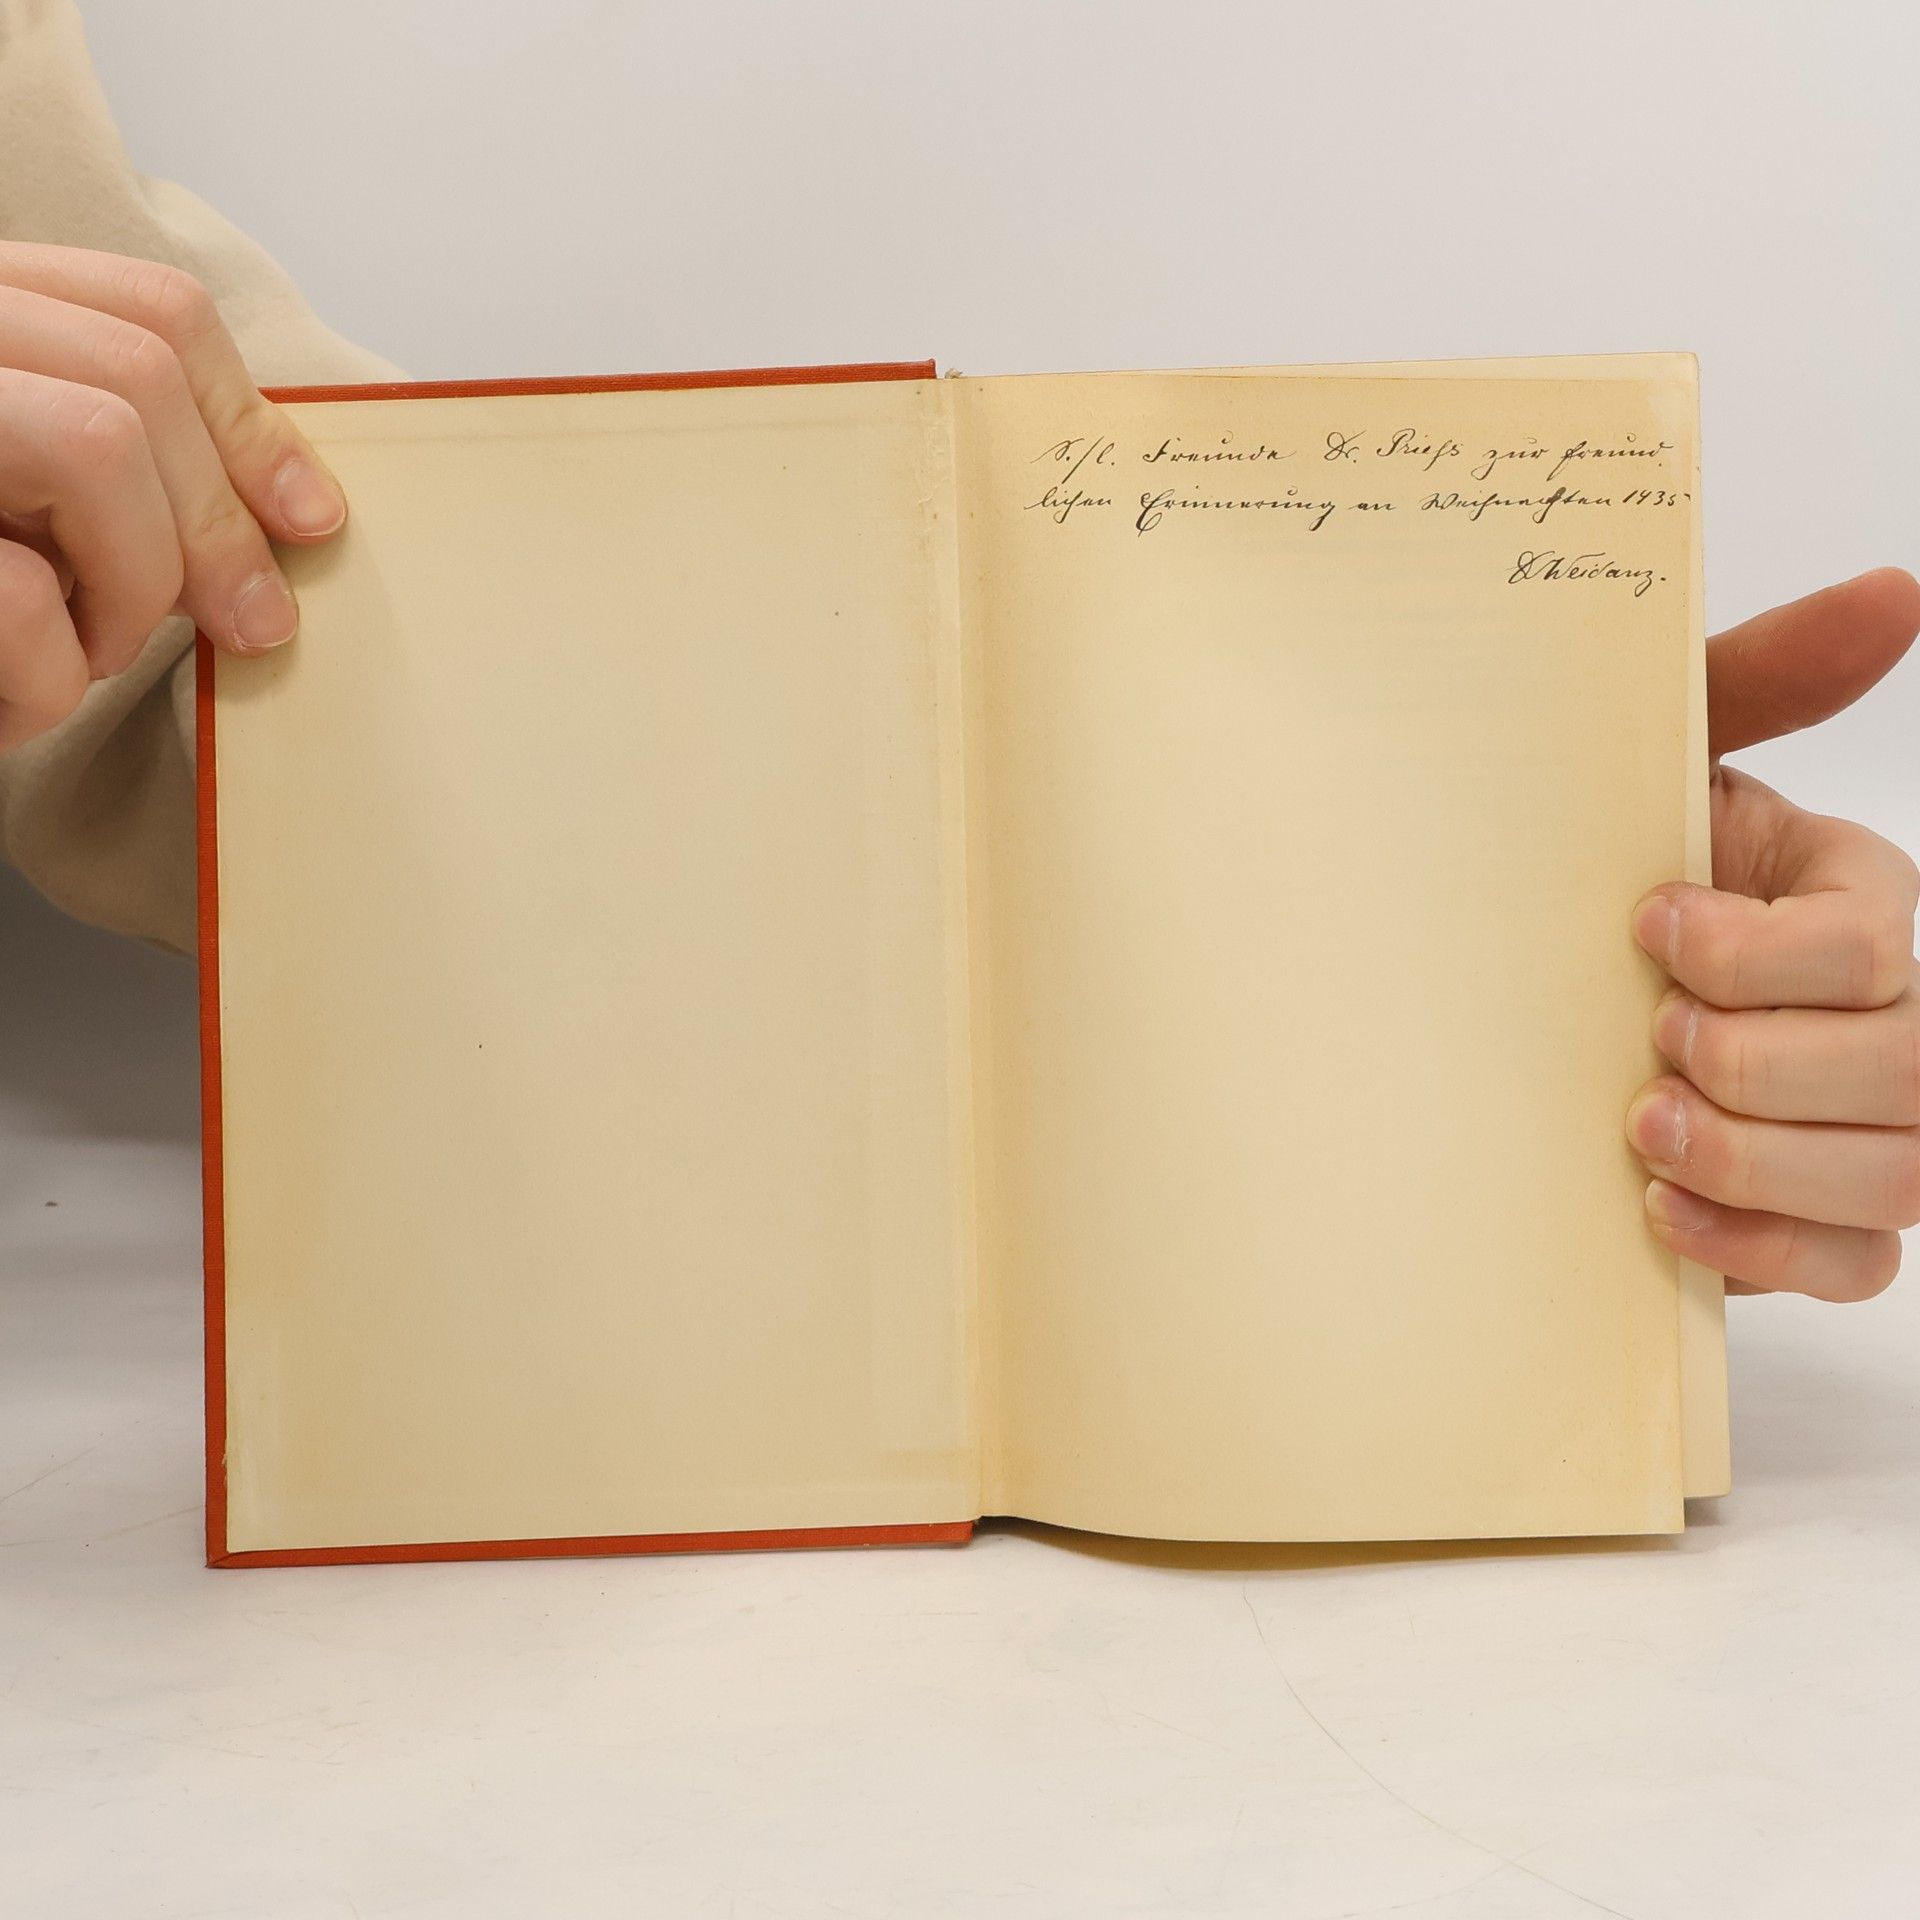 S./l. Freunde Dr. Priess zur freund
lichen Erinnerung an Weihnachten 1935
DWeidanz.